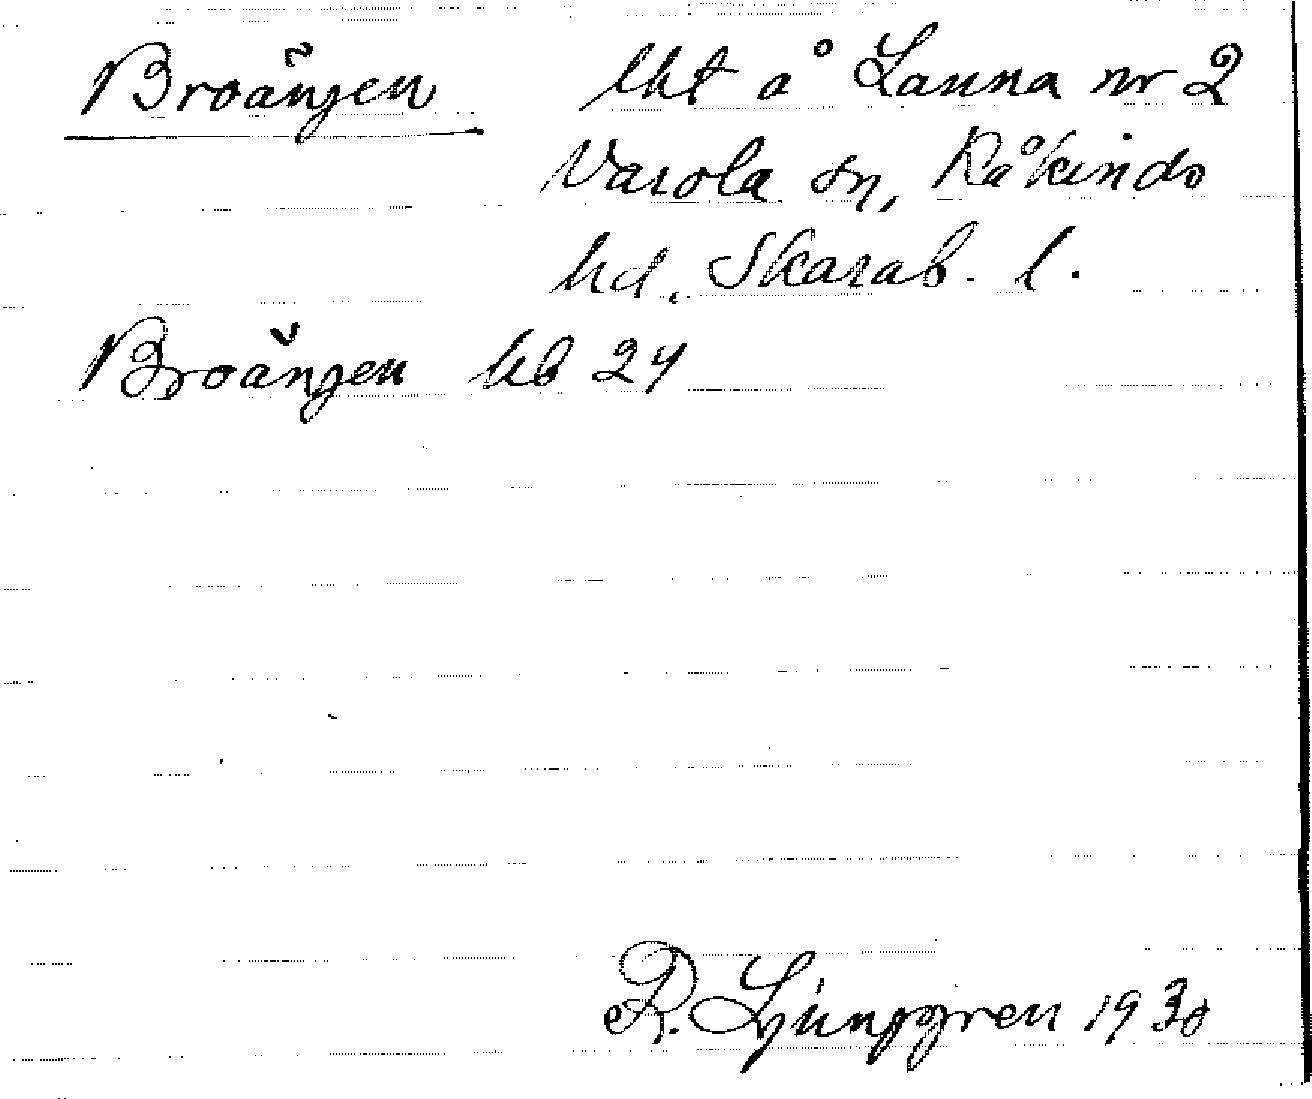 Broängen lht å Lanna nr 2
Varola sn, Kåkinds
hd. Skarab. l.
Broängen kb 24
R. Ljunggren 1930